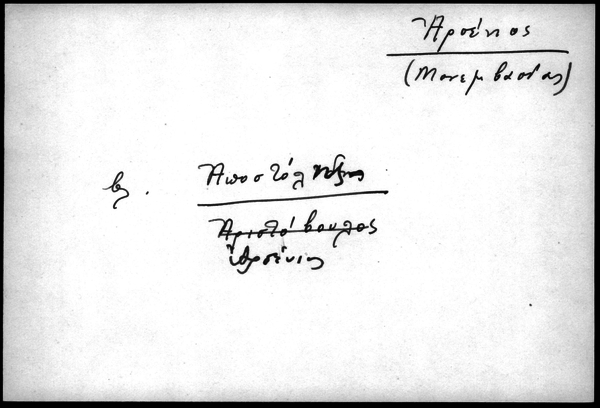 Ἀρσένιος
(Μονεμβασίας)
βλ. Ἀποστόλης
Ἀριστόβουλος
Ἀρσένιος